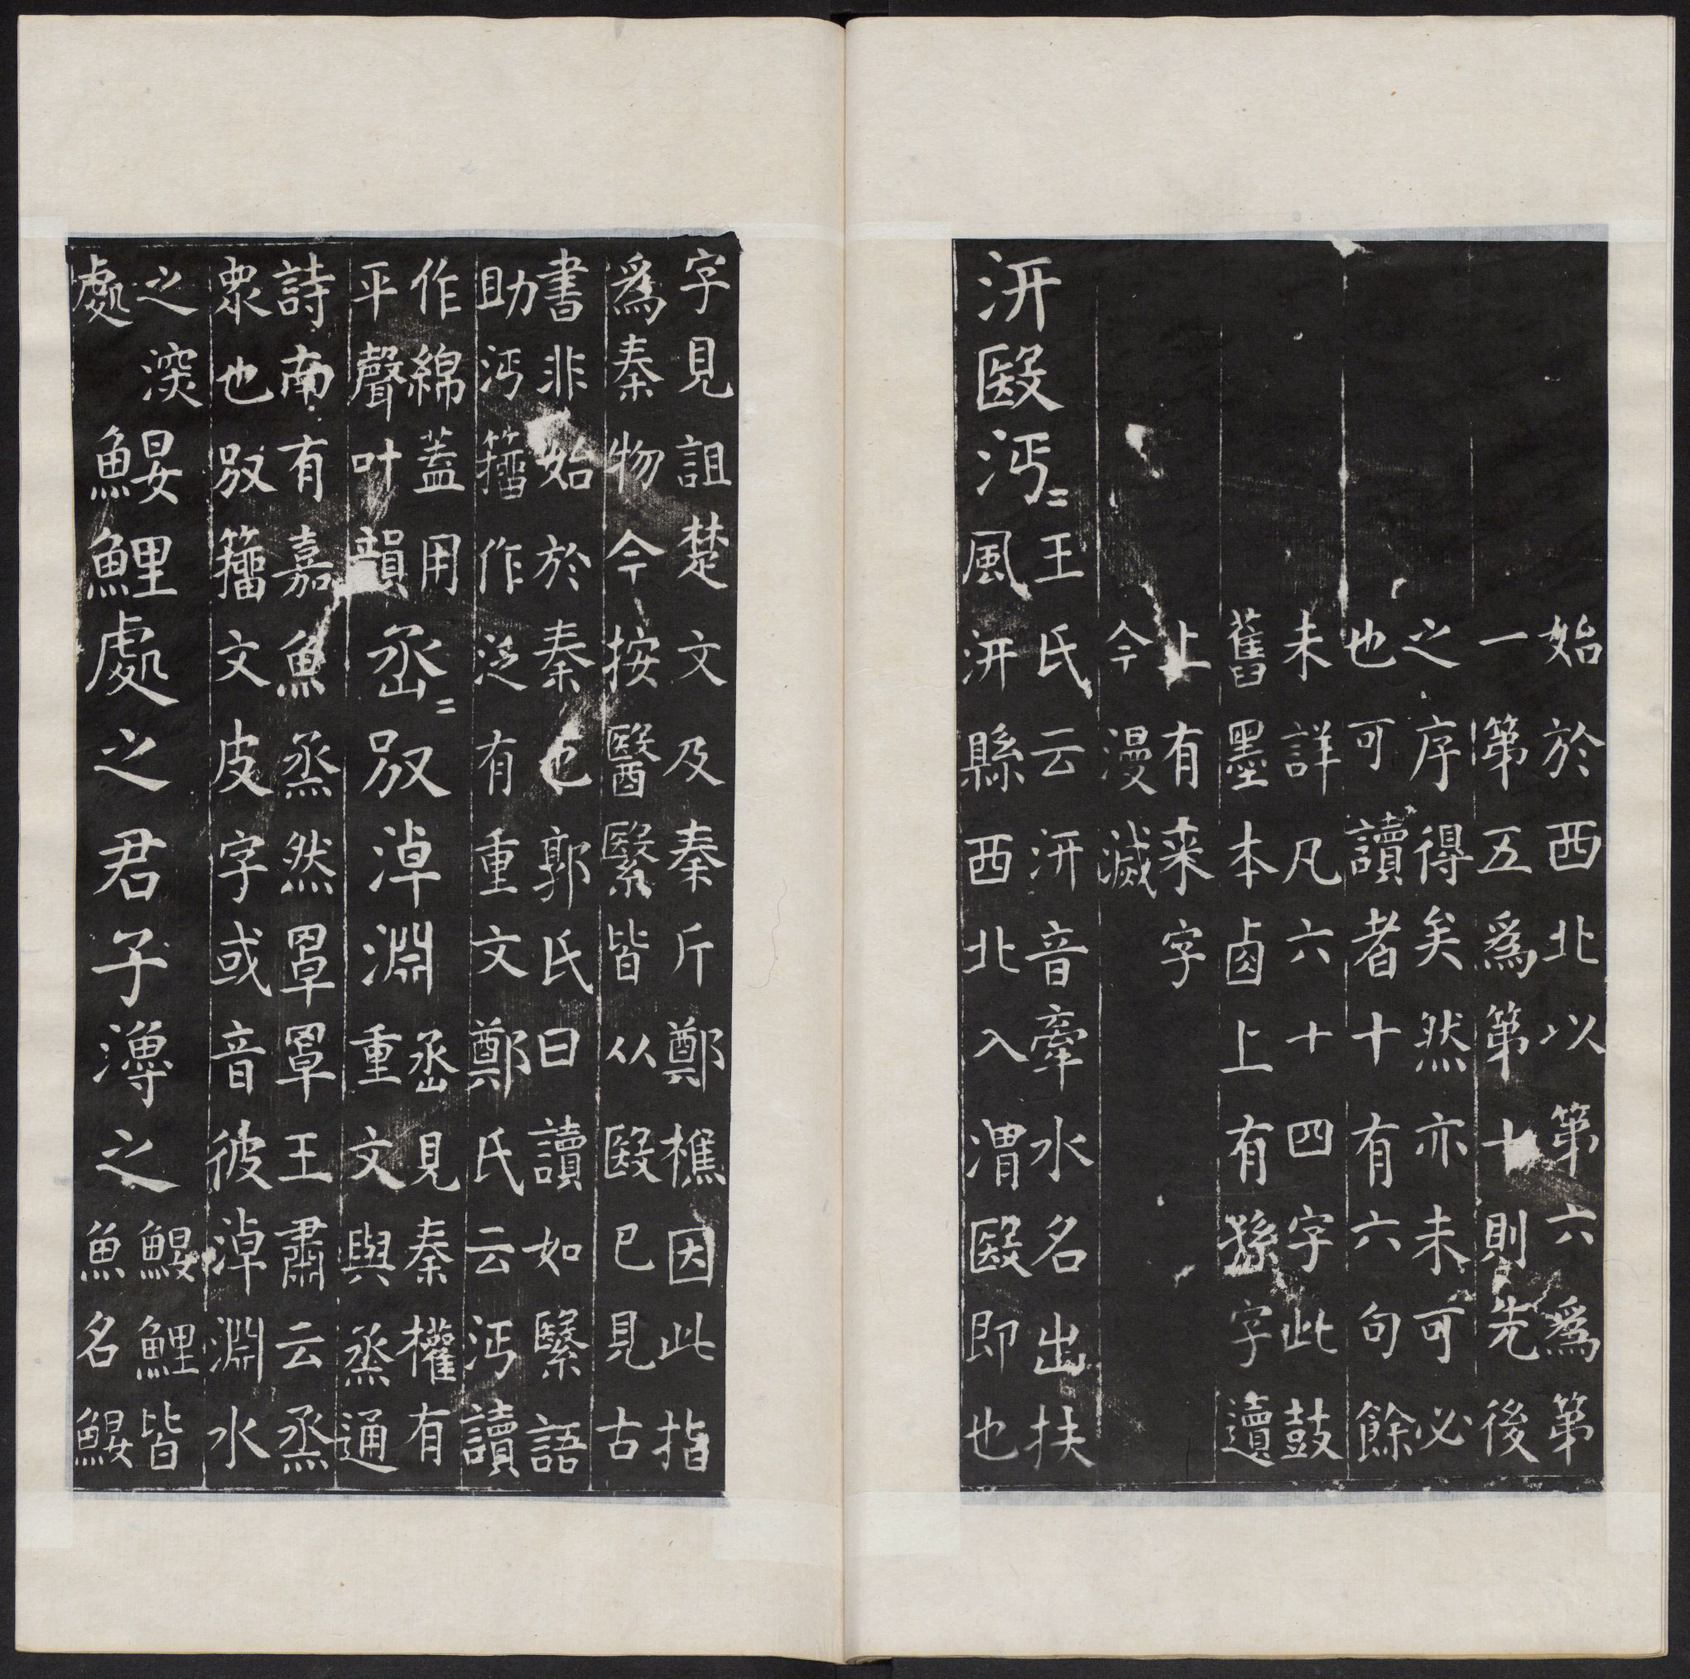 始於西北以第六爲第
一第五爲第十則先後
之序得矣然亦未可必
也可讀者十有六句餘
未詳凡六十四字此鼓
舊墨本卤上有𩣡字遺
上有来字
今漫滅
汧殹沔〓
王氏云汧音牽水名出扶
風汧縣西北入渭殹即也
字見詛楚文及秦斤鄭樵因此指
爲秦物今按醫繄皆从殹已見古
書非始於秦也郭氏曰讀如繄語
助沔籀作泛有重文鄭氏云沔讀
作綿蓋用
平聲叶韻
烝〓𢻻淖淵
烝見秦權有
重文與烝通
詩南有嘉魚烝然罩罩王肅云烝
衆也𢻻籀文皮字或音彼淖淵水
之深
處
鰋鯉處之君子漁之
鰋鯉皆
魚名鰋